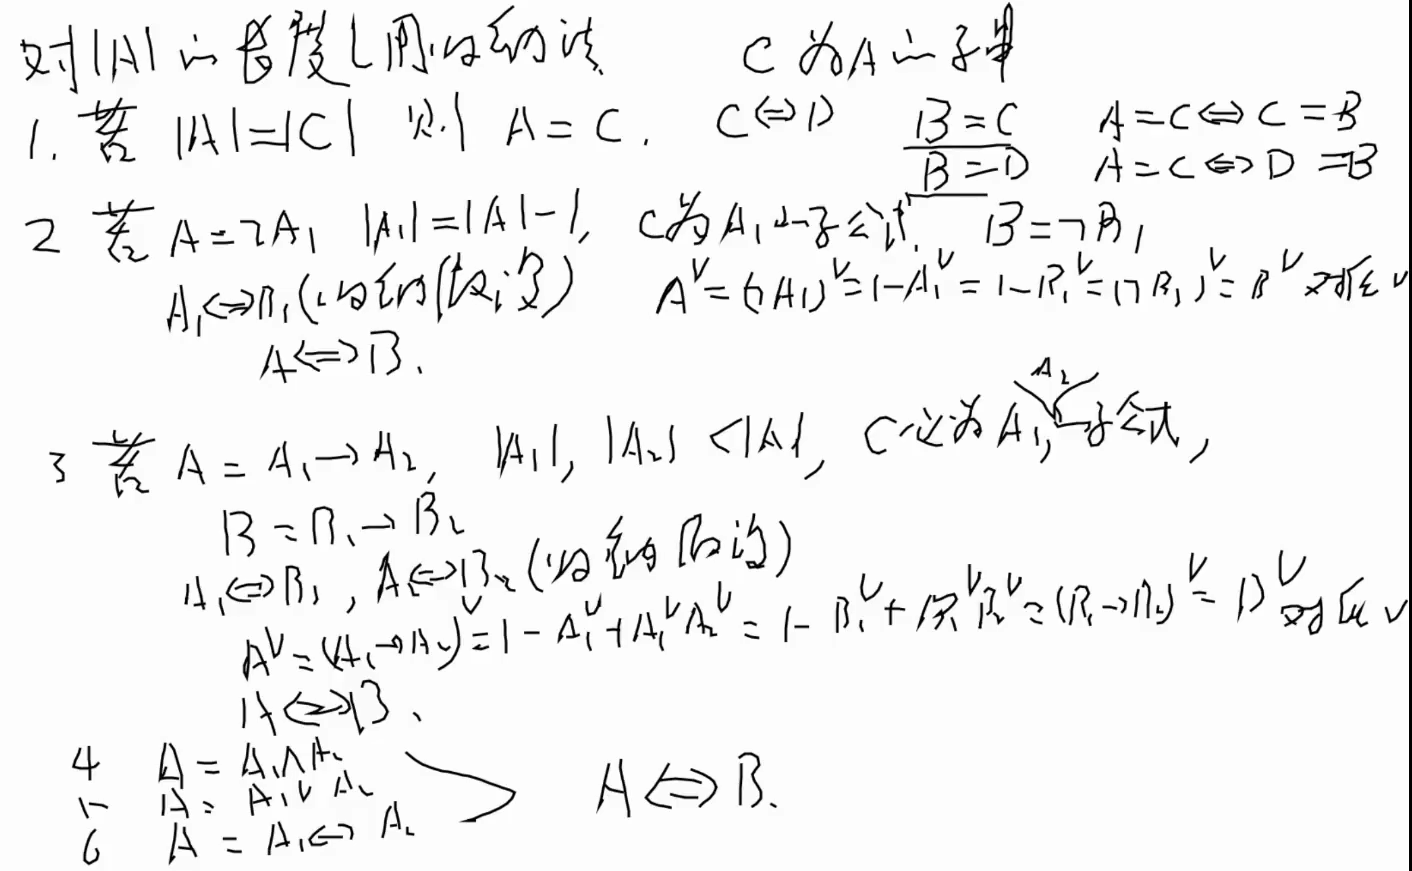 对|A|的长度L用归纳法 C为A的子串
1. 若 |A|=|C| 则 A=C. C⇔D B=C A=C⇔C=B
B=D A=C⇔D=B
2 若 A=¬A₁ |A₁|=|A|-1, C为A₁的子公式 B=¬B₁
A₁⇔B₁(归纳假设) Aᵛ=(¬A₁)ᵛ=1-A₁ᵛ=1-B₁ᵛ=(¬B₁)ᵛ=Bᵛ 对任v
A⇔B.
3 若 A=A₁→A₂, |A₁|, |A₂| <|A|, C必为A₁, A₂ 子公式,
B=B₁→B₂
A₁⇔B₁, A₂⇔B₂(归纳假设)
Aᵛ=(A₁→A₂)ᵛ=1-A₁ᵛ+A₁ᵛA₂ᵛ=1-B₁ᵛ+B₁ᵛB₂ᵛ=(B₁→B₂)ᵛ=Bᵛ 对任v
A⇔B.
4 A=A₁∧A₂
5 A=A₁∨A₂ A⇔B.
6 A=A₁⇔A₂